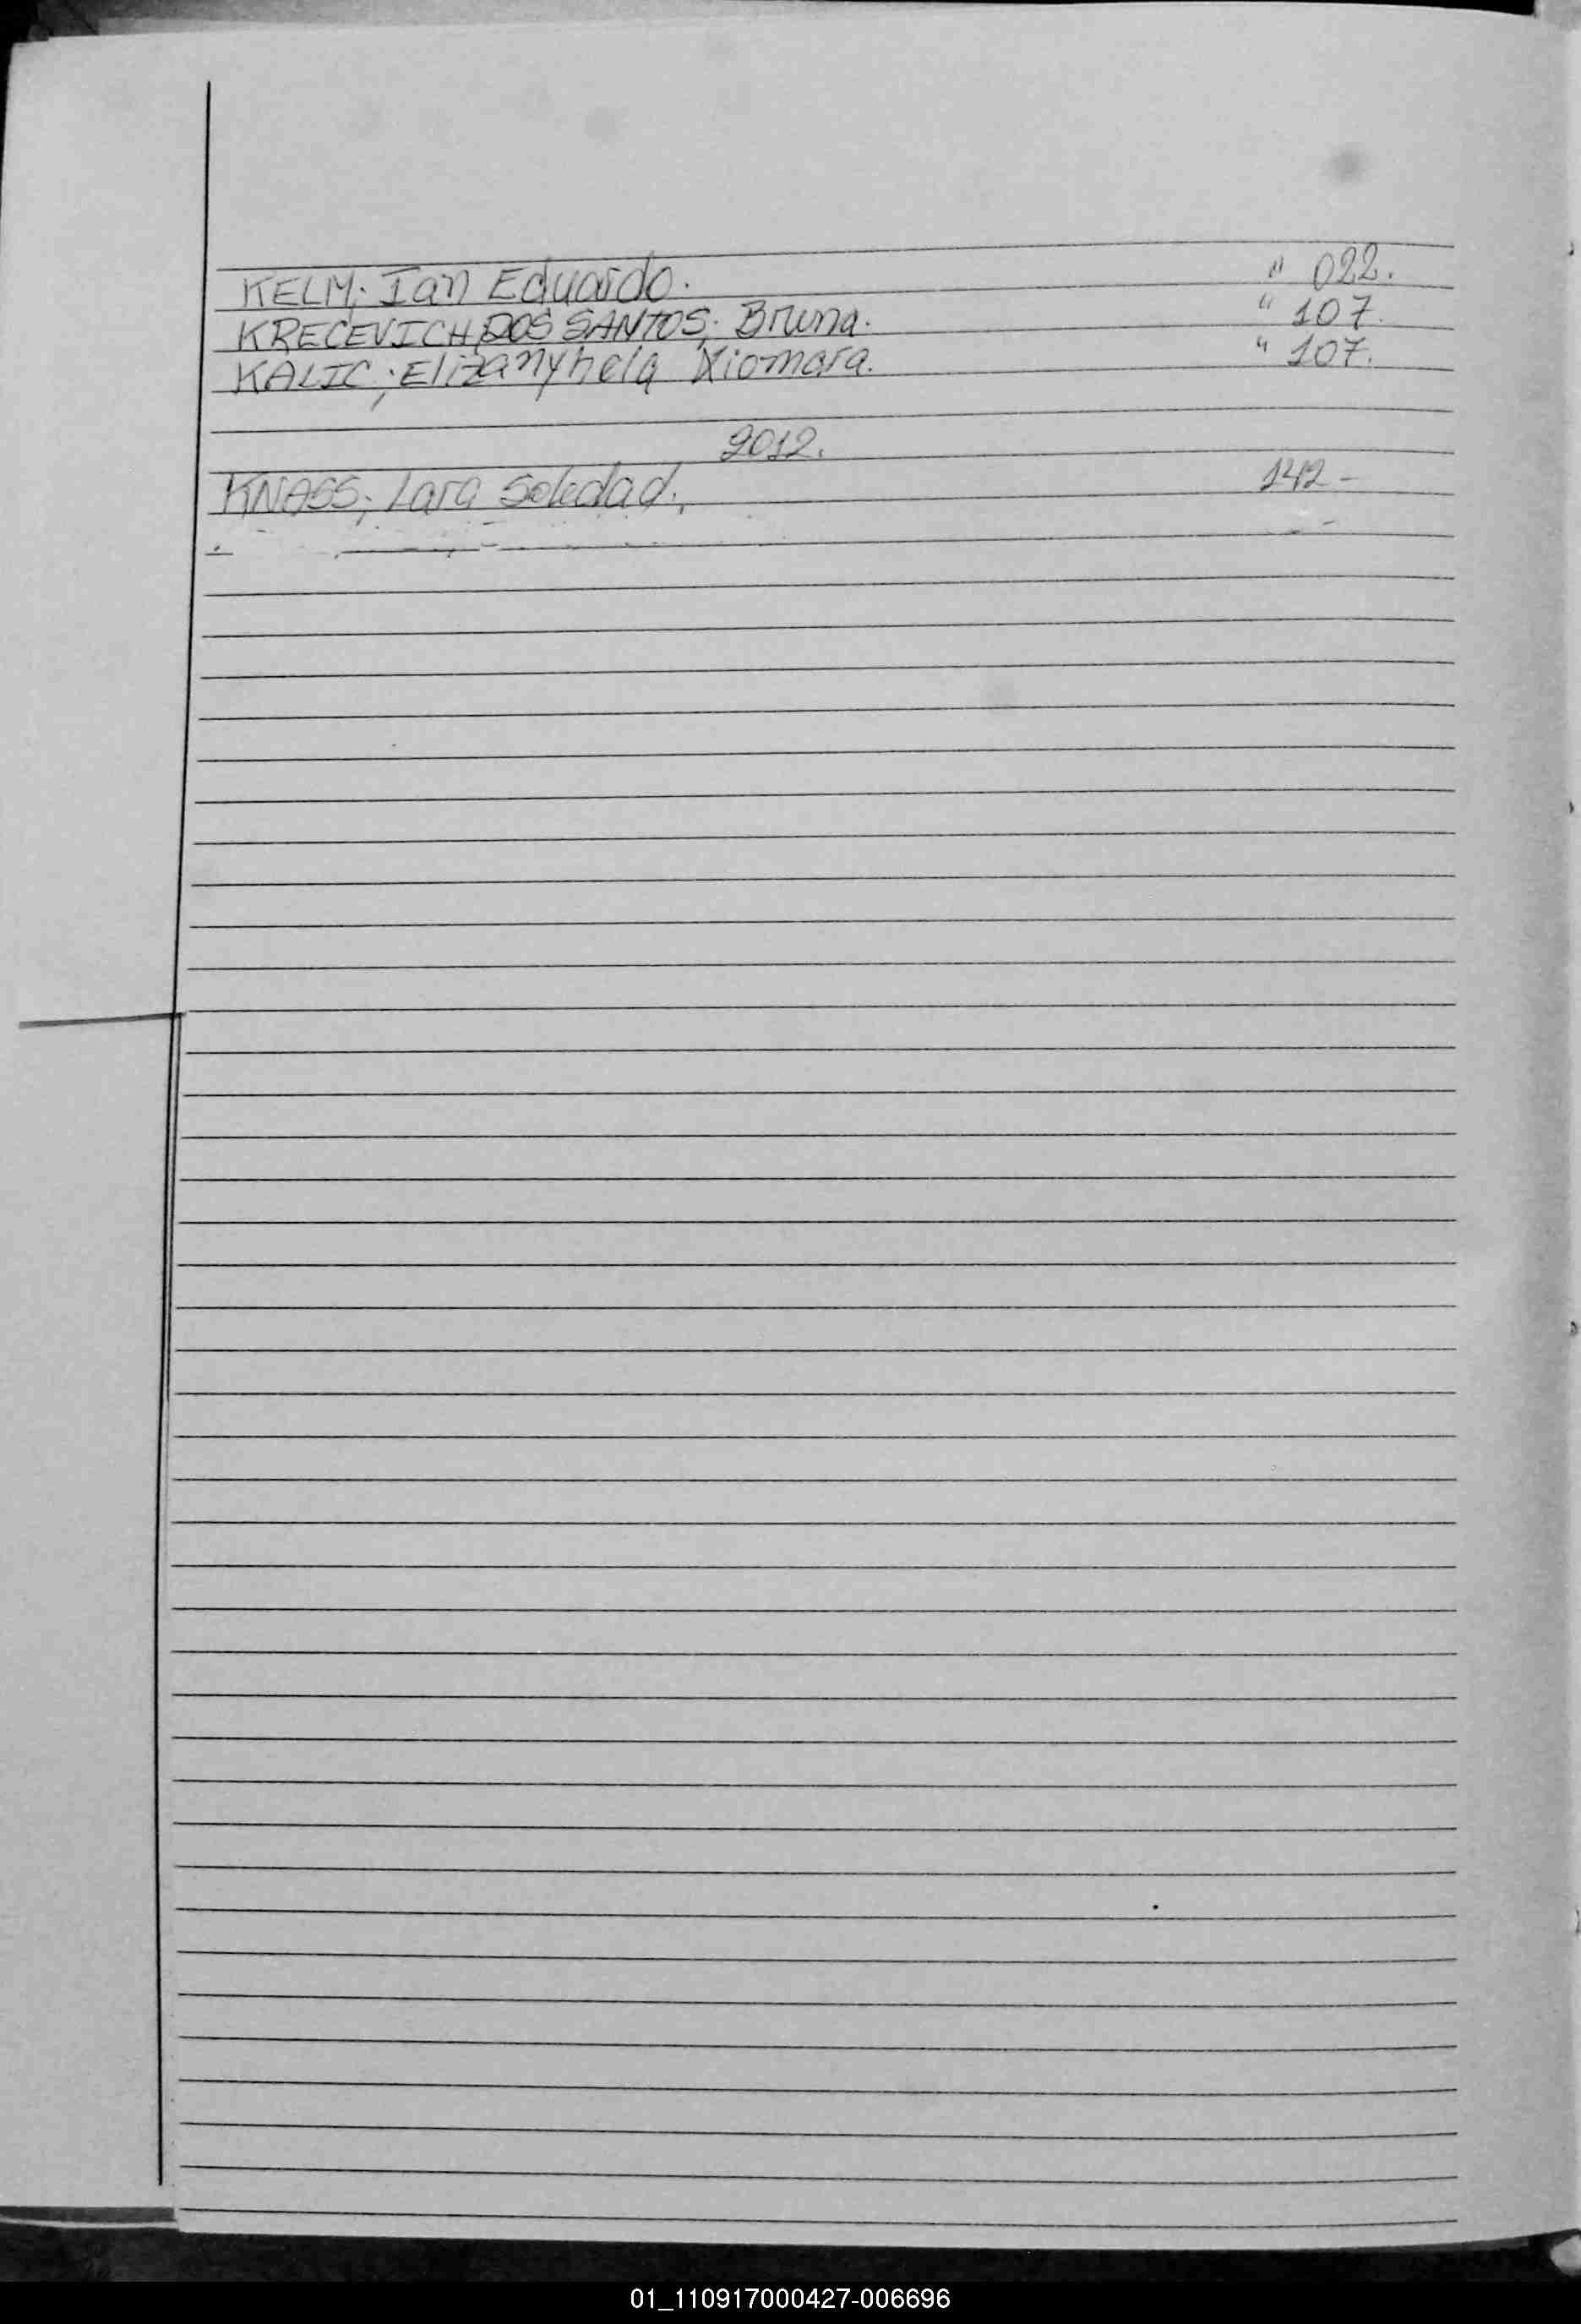 KELM; Ian Eduardo. " 022.
KRECEVICH DOS SANTOS; Bruna. " 107.
KALIC; Elizanyhela Xiomara. " 107.
2012.
KNASS; Lara Soledad. 142-
01_110917000427-006696